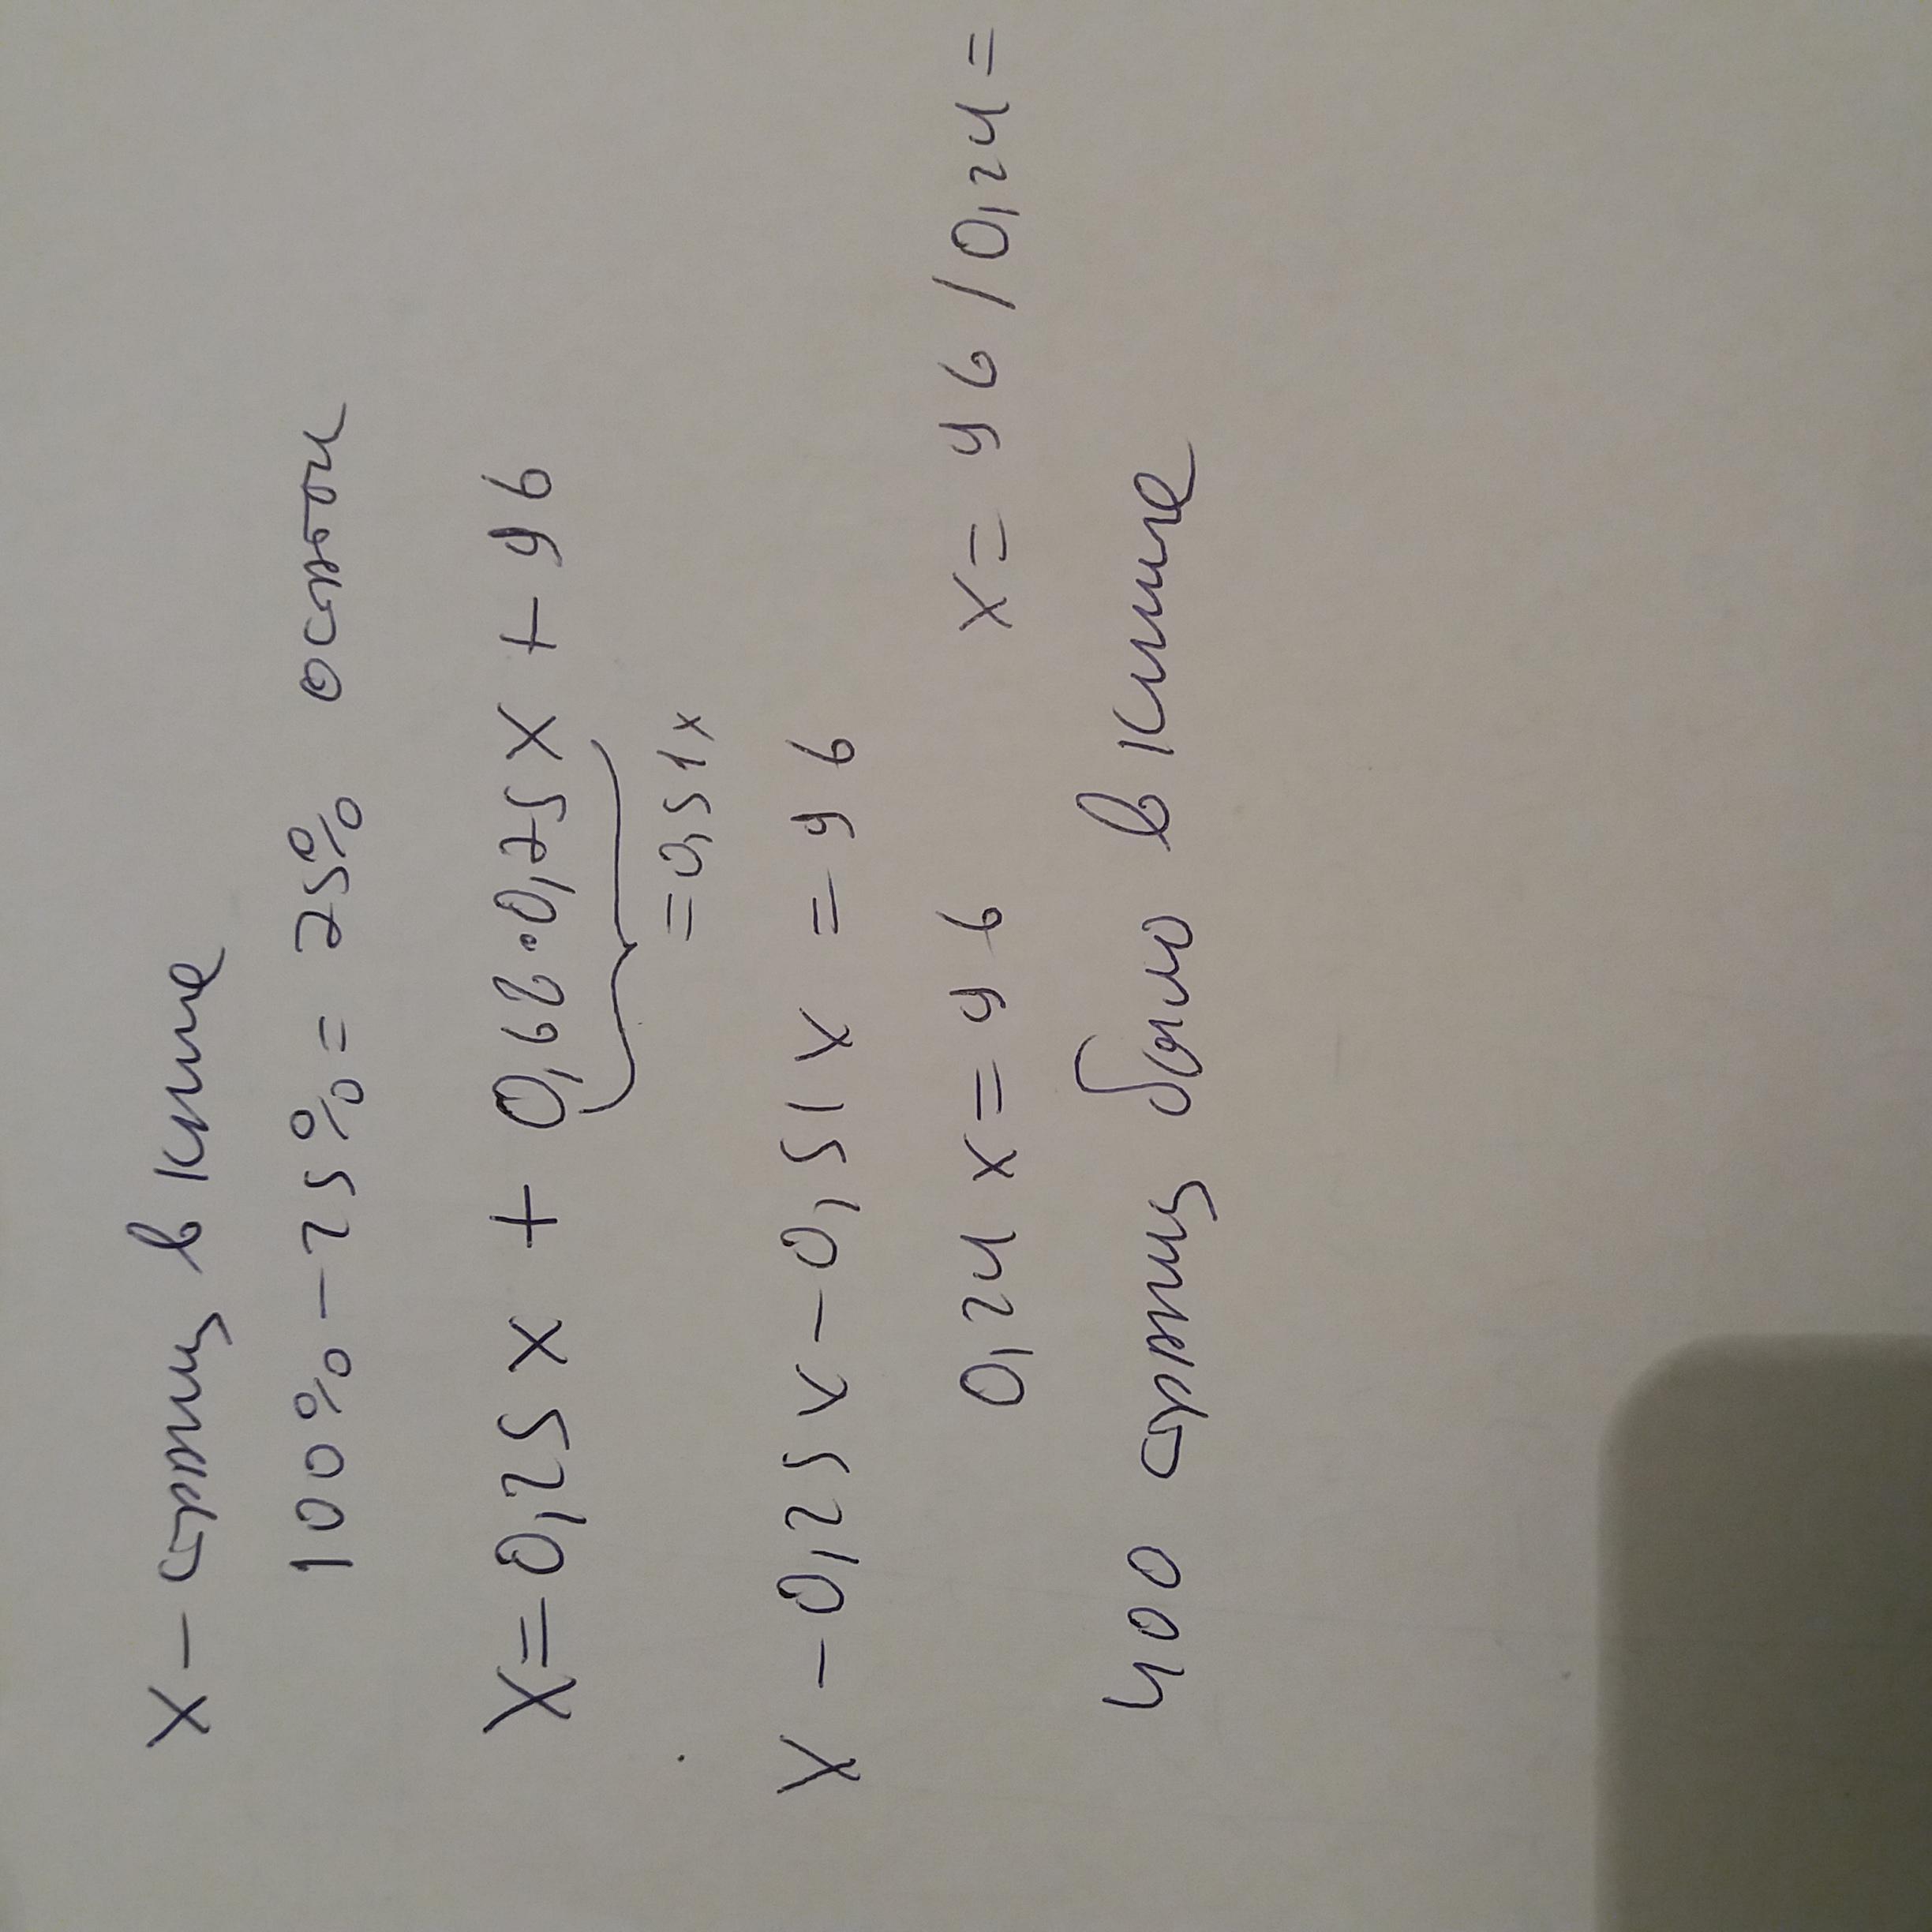 x – страниц в книге
100% – 25% = 75% остаток
X = 0,25x + 0,68·0,75x + 96
= 0,51x
X – 0,25x – 0,51x = 96
0,24x = 96 x = 96/0,24 =
400 страниц было в книге